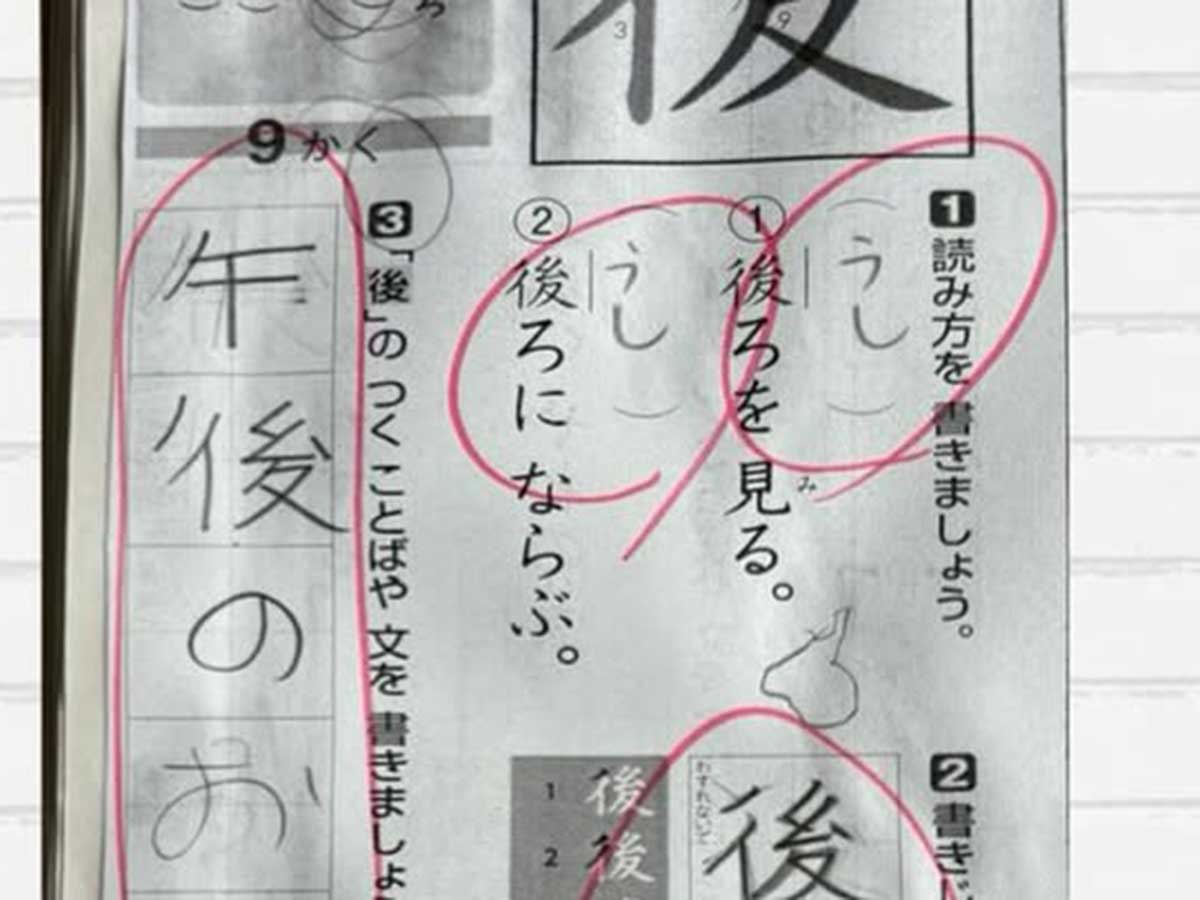 後
3
9
9かく
1 読み方を 書きましょう。
うし
①後ろを 見る。
み
うし
②後ろに ならぶ。
2 書き
わすれないで
後
1 後
2 後
3 「後」の つく ことばや 文を 書きましょ
午後のお